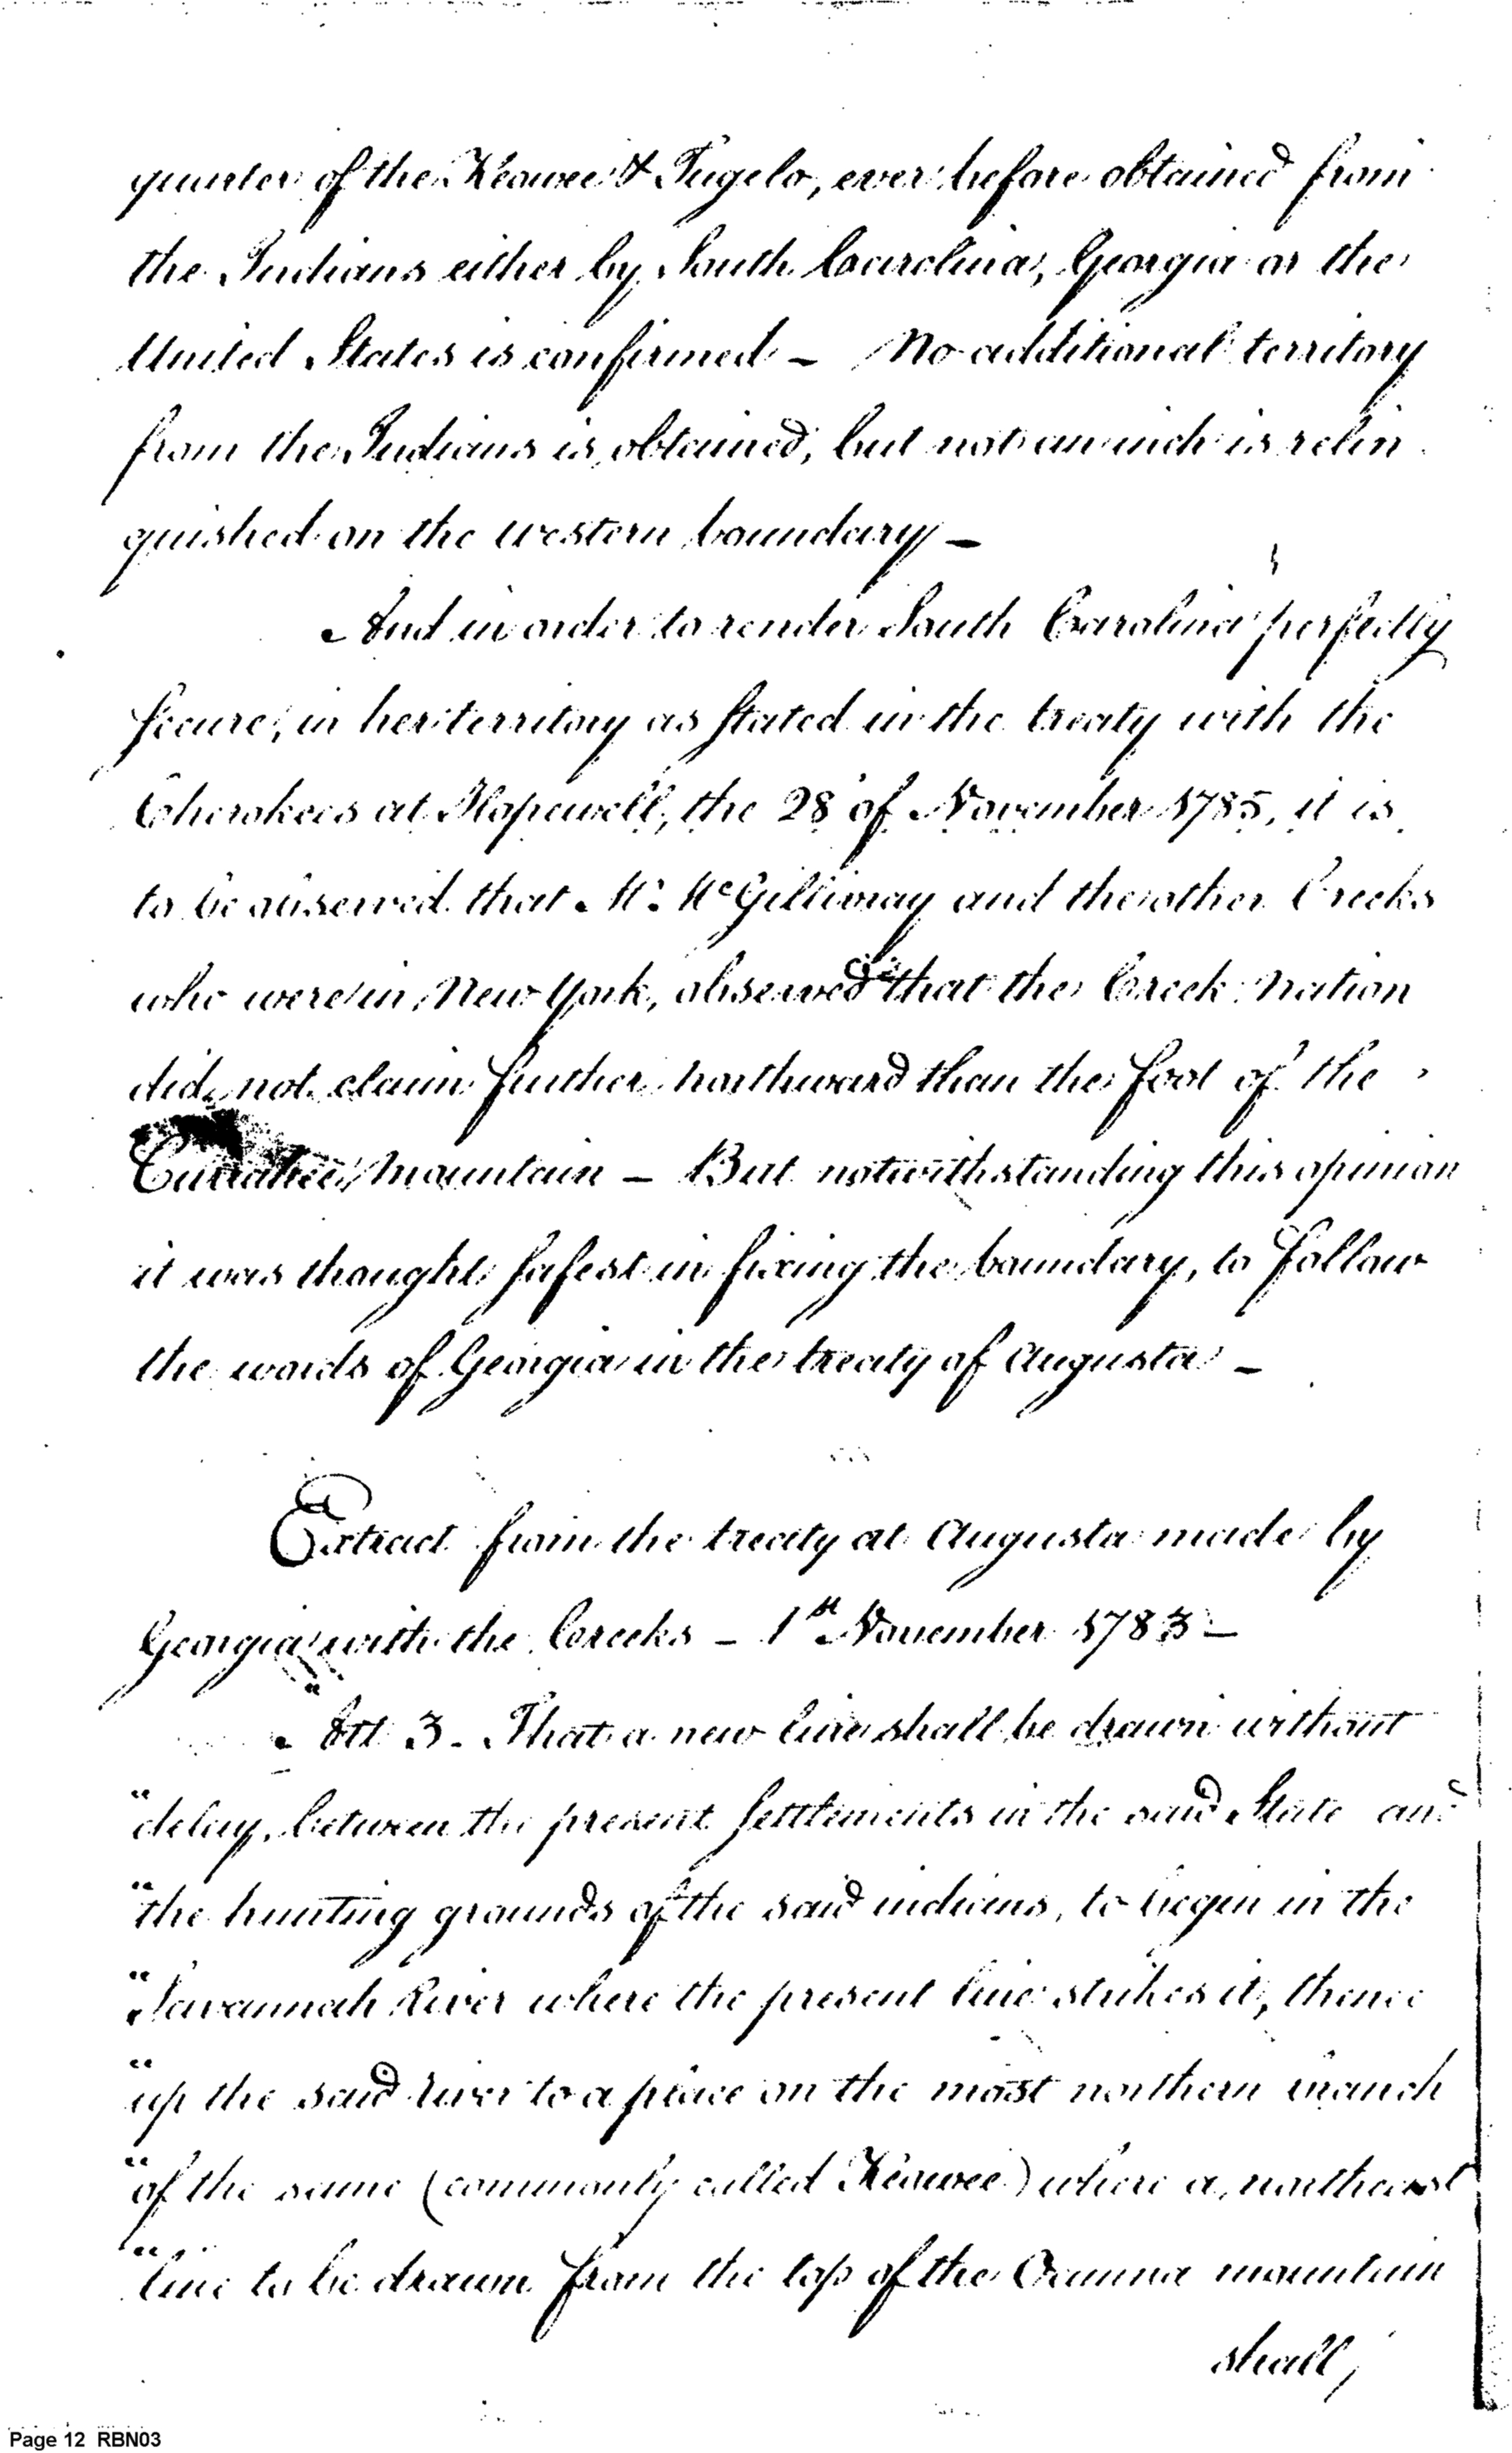 quarter of the Keowee & Tugelo, ever before obtained from
the Indians either by South Carolina, Georgia or the
United States is confirmed - No additional territory
from the Indians is obtained, but not an inch is relin
quished on the western boundary -
And in order to render South Carolina perfectly
secure, in her territory as stated in the treaty with the
Cherokees at Hopewell, the 28 of November 1785, it is
to be observed that Mr. McGillivray and the other Creeks
who were in New York, observed that the Creek Nation
did not claim further northward than the foot of the
Currahee Mountain - But notwithstanding this opinion
it was thought safest in fixing the boundary, to follow
the words of Georgia in the treaty of Augusta -
Extract from the treaty at Augusta made by
Georgia with the Creeks - 1st November 1783 -
"Art 3 - That a new line shall be drawn without
"delay, between the present settlements in the said State and
"the hunting grounds of the said indians, to begin in the
"Savannah River where the present line strikes it, thence
"up the said river to a place on the most northern branch
"of the same (commonly called Keowee) where a northeast
"line to be drawn from the top of the Ocunna mountain
shall,
Page 12 RBN03